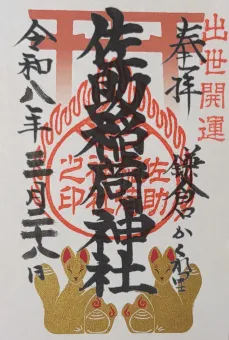 出世開運
奉拝
鎌倉かくれ里
佐助稲荷神社
令和八年三月二十八日
佐助
稲荷神社
之印